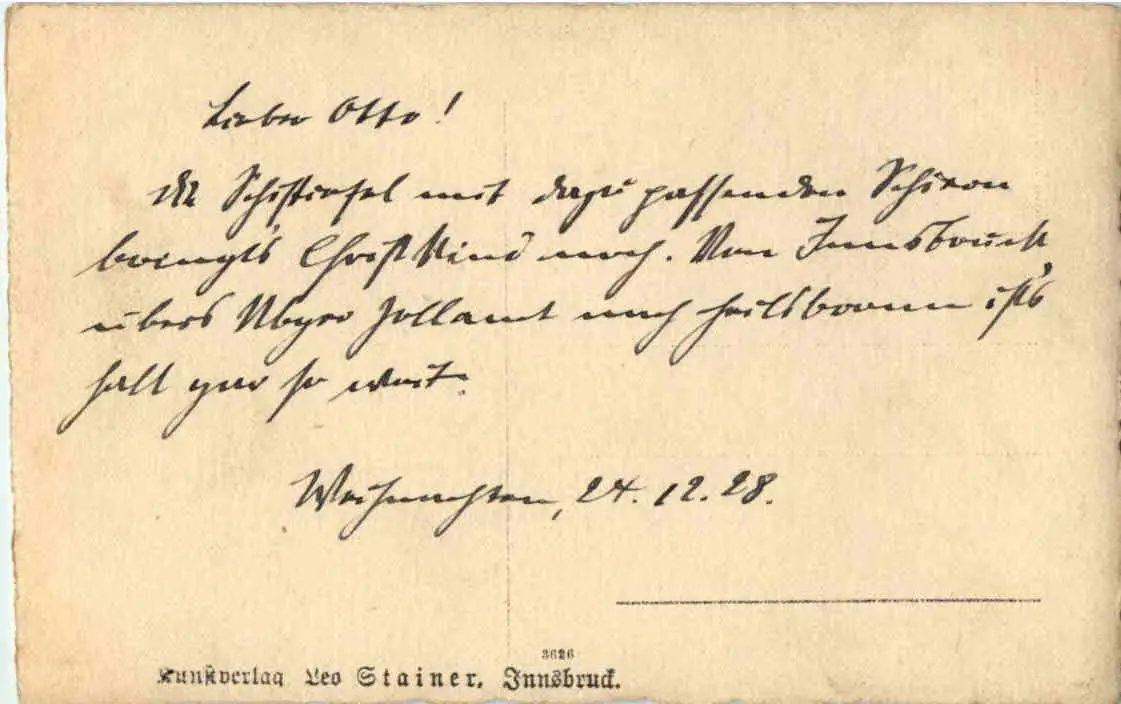 Lieber Otto!
Die Schistiefel mit dazu passenden Schieren
bringt's Christkind noch. Von Innsbruck
übers Zollamt nach Heilsbronn ist's
halt gar so weit.
Weihnachten, 24.12.28.
3626
Kunstverlag Leo Stainer, Innsbruck.